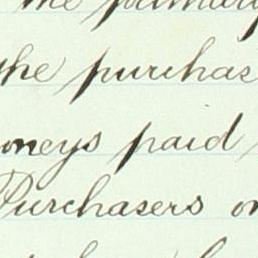 the primary
the purchas
oneys paid
Purchasers on